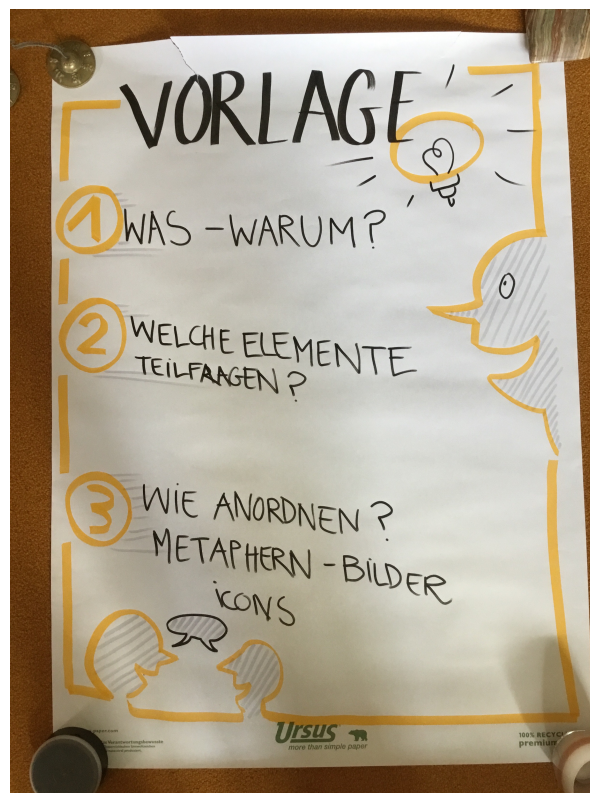 VORLAGE
1 WAS - WARUM?
2 WELCHE ELEMENTE
TEILFRAGEN?
3 WIE ANORDNEN?
METAPHERN - BILDER
iCONS
Ursus
more than simple paper
100% RECYC
premium